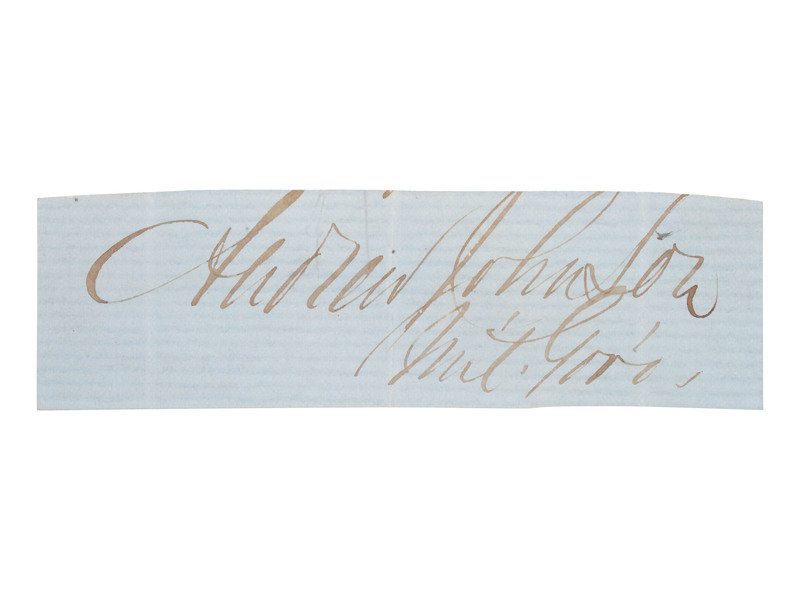 Andrew Johnson
Mil. Gov'r.